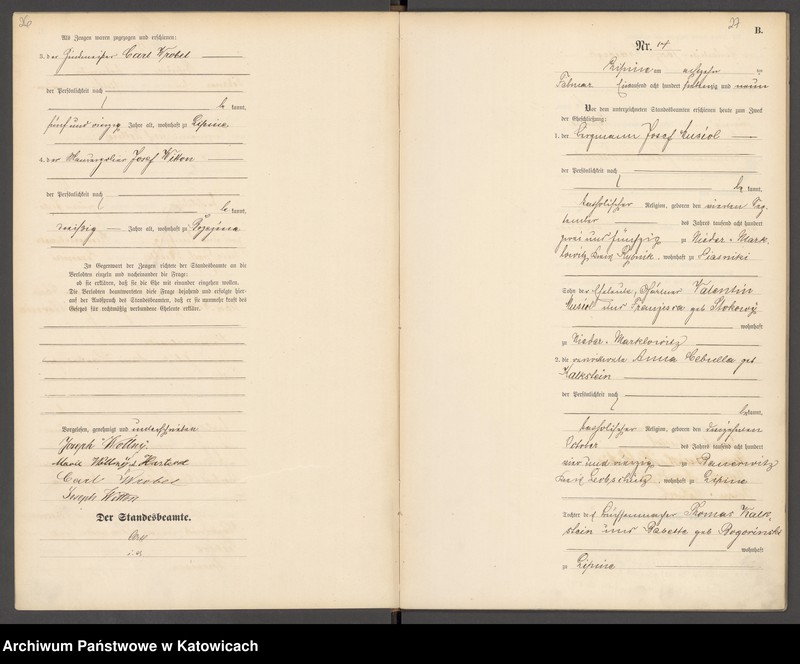 26
Als Zeugen waren zugezogen und erschienen:
3. der Carl Wrobel
der Persönlichkeit nach
be kannt,
fünf und vierzig Jahre alt, wohnhaft zu Lipine
4. der Josef Witton
der Persönlichkeit nach
be kannt,
dreißig Jahre alt, wohnhaft zu
In Gegenwart der Zeugen richtete der Standesbeamte an die
Verlobten einzeln und nacheinander die Frage:
ob sie erklären, daß sie die Ehe mit einander eingehen wollen.
Die Verlobten beantworteten diese Frage bejahend und erfolgte hier-
auf der Ausspruch des Standesbeamten, daß er sie nunmehr kraft des
Gesetzes für rechtmäßig verbundene Eheleute erkläre.
Vorgelesen, genehmigt und unterschrieben
Joseph Wollny
Marie Wollny
Carl Wrobel
Joseph Witton
Der Standesbeamte.
27
B.
Nr. 14
Lipine am achtzehn ten
Februar tausend acht hundert achtzig und neun
Vor dem unterzeichneten Standesbeamten erschienen heute zum Zweck
der Eheschließung:
1. der Bergmann Josef Musiol
der Persönlichkeit nach
be kannt,
katholischer Religion, geboren den vierten Sep-
tember des Jahres tausend acht hundert
zwei und fünfzig zu Nieder-Mark-
lowitz, Kreis Rybnik, wohnhaft zu Piasniki
Sohn der Eheleute, Valentin
Musiol und Franziska geb
wohnhaft
zu Nieder-Marklowitz
2. die verwittwete Anna Cebulla geb
Kalkstein
der Persönlichkeit nach
be kannt,
katholischer Religion, geboren den
October des Jahres tausend acht hundert
vier und vierzig zu Bauerwitz
Kreis Leobschütz, wohnhaft zu Lipine
Tochter des Büchsenmacher Thomas Kalk-
stein und Babette geb
wohnhaft
zu Lipine
Archiwum Państwowe w Katowicach